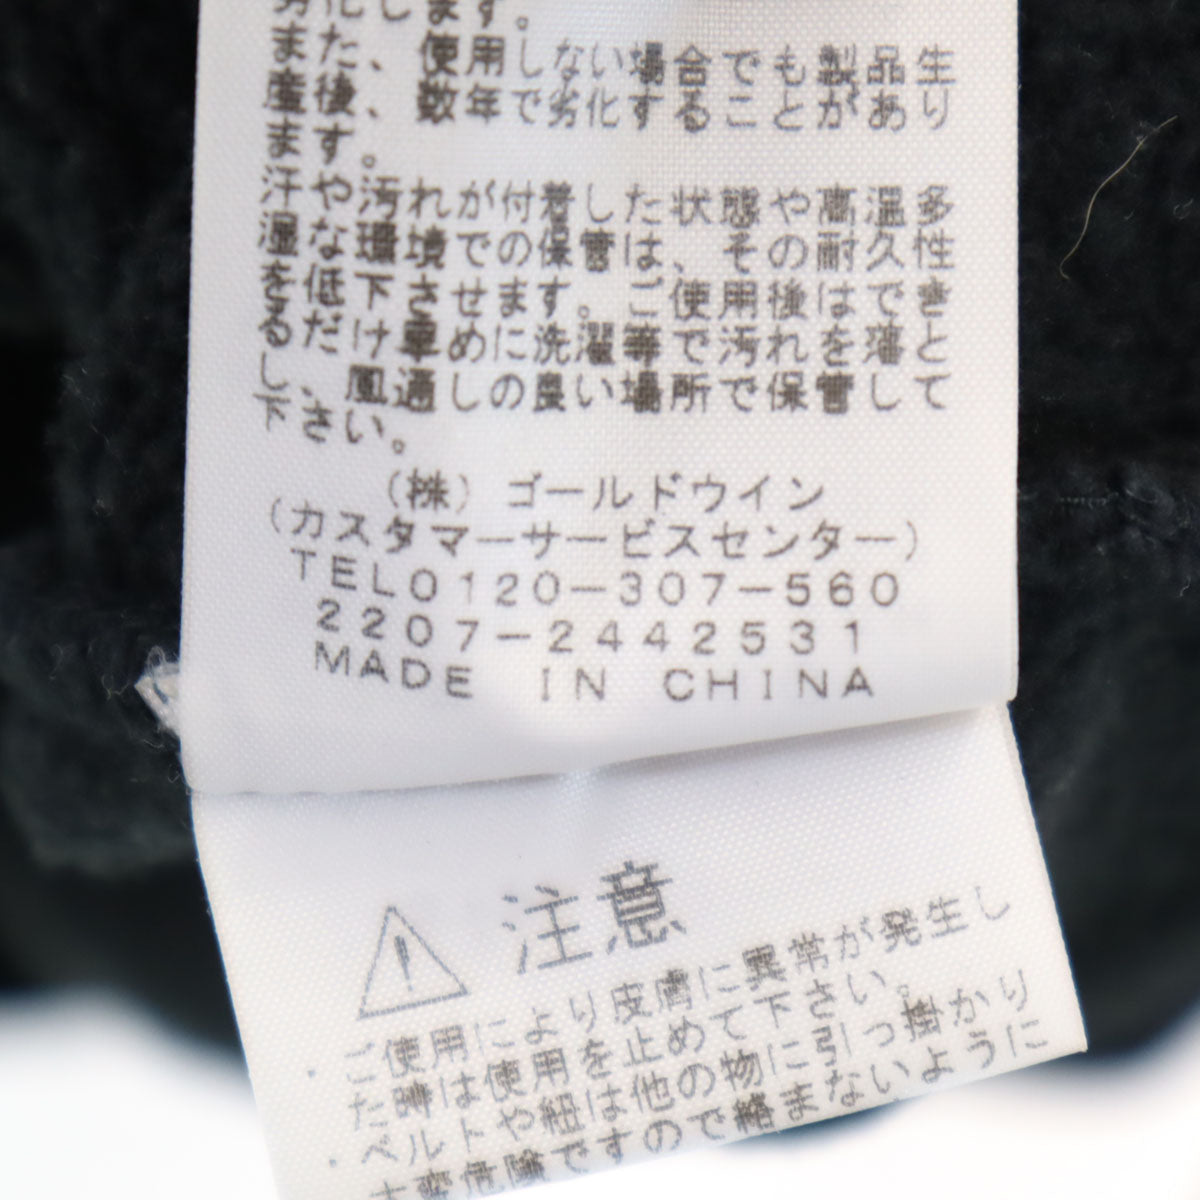 劣化します。
また、使用しない場合でも製品生
産後、数年で劣化することがあり
ます。
汗や汚れが付着した状態や高温多
湿な環境での保管は、その耐久性
を低下させます。ご使用後はでき
るだけ早めに洗濯等で汚れを落と
し、風通しの良い場所で保管して
下さい。
(株)ゴールドウイン
(カスタマーサービスセンター)
TEL0120-307-560
2207-2442531
MADE IN CHINA
注意
・ご使用により皮膚に異常が発生し
た時は使用を止めて下さい。
・ベルトや紐は他の物に引っ掛かり
大変危険ですので絡まないように